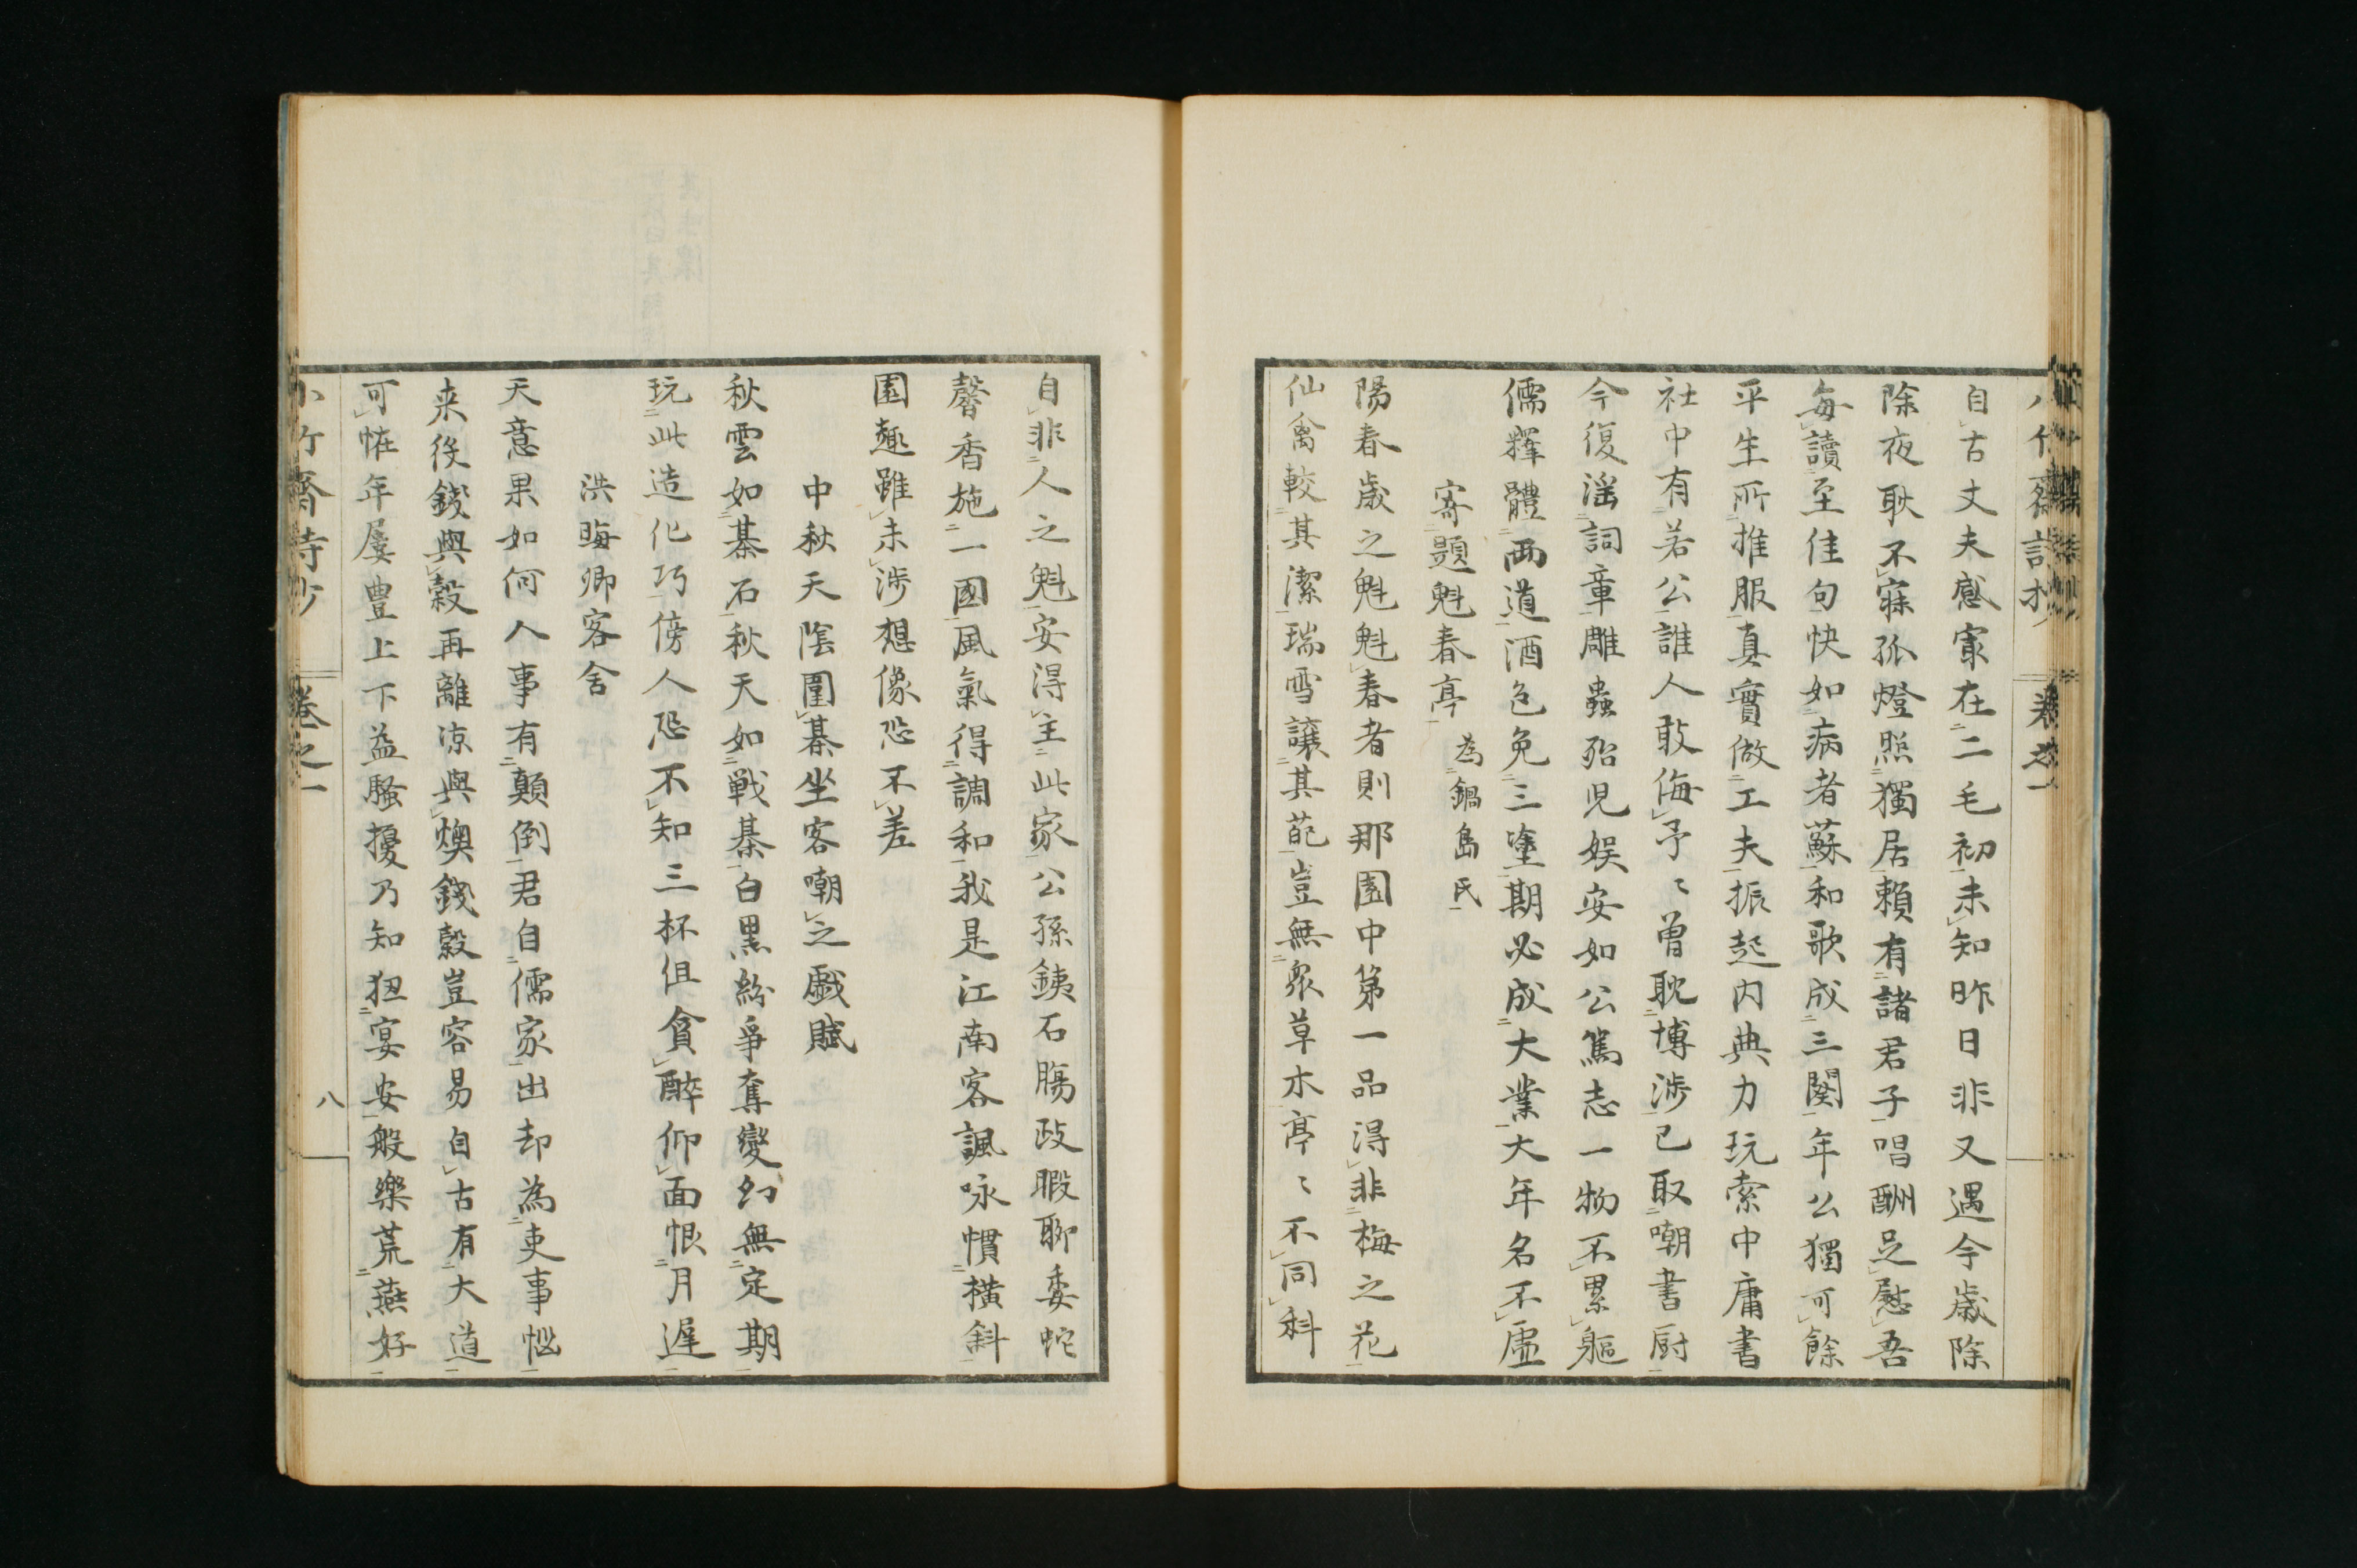 自古丈夫感寡在二毛初未知昨日非又遇今歳除
除夜耿不寐孤燈照獨居頼有諸君子唱酬足慰吾
毎讀至佳句快如病者蘇和歌成三闋年公獨可餘
平生所推服真實做工夫振起内典力玩索中庸書
社中有若公誰人敢侮予〻曽耽博渉已取嘲書厨
今復滛詞章雕蟲殆児娯安如公篤志一物不累軀
儒釋體両道酒色免三塗期必成大業大年名不虚
寄題魁春亭 為鍋島氏
陽春歳之魁魁春者則那園中第一品得非梅之花
仙禽較其潔瑞雪譲其葩豈無衆草木亭〻不同科
自非人之魁安得主此家公孫銕石膓政暇聊委蛇
馨香施一國風氣得調和我是江南客諷咏慣横斜
園趣雖未渉想像恐不差
中秋天陰圍棊坐客嘲之戯賦
秋雲如棊石秋天如戦棊白黒紛爭奪變幻無定期
玩此造化巧傍人恐不知三杯但貪醉仰面恨月遅
洪晦卿客舎
天意果如何人事有顛倒君自儒家出却為吏事悩
来役錢與穀再離凉與燠錢穀豈容易自古有大道
可恠年屡豊上下益騒擾乃知狃宴安般樂荒燕好
小竹齋詩抄 巻之一 八